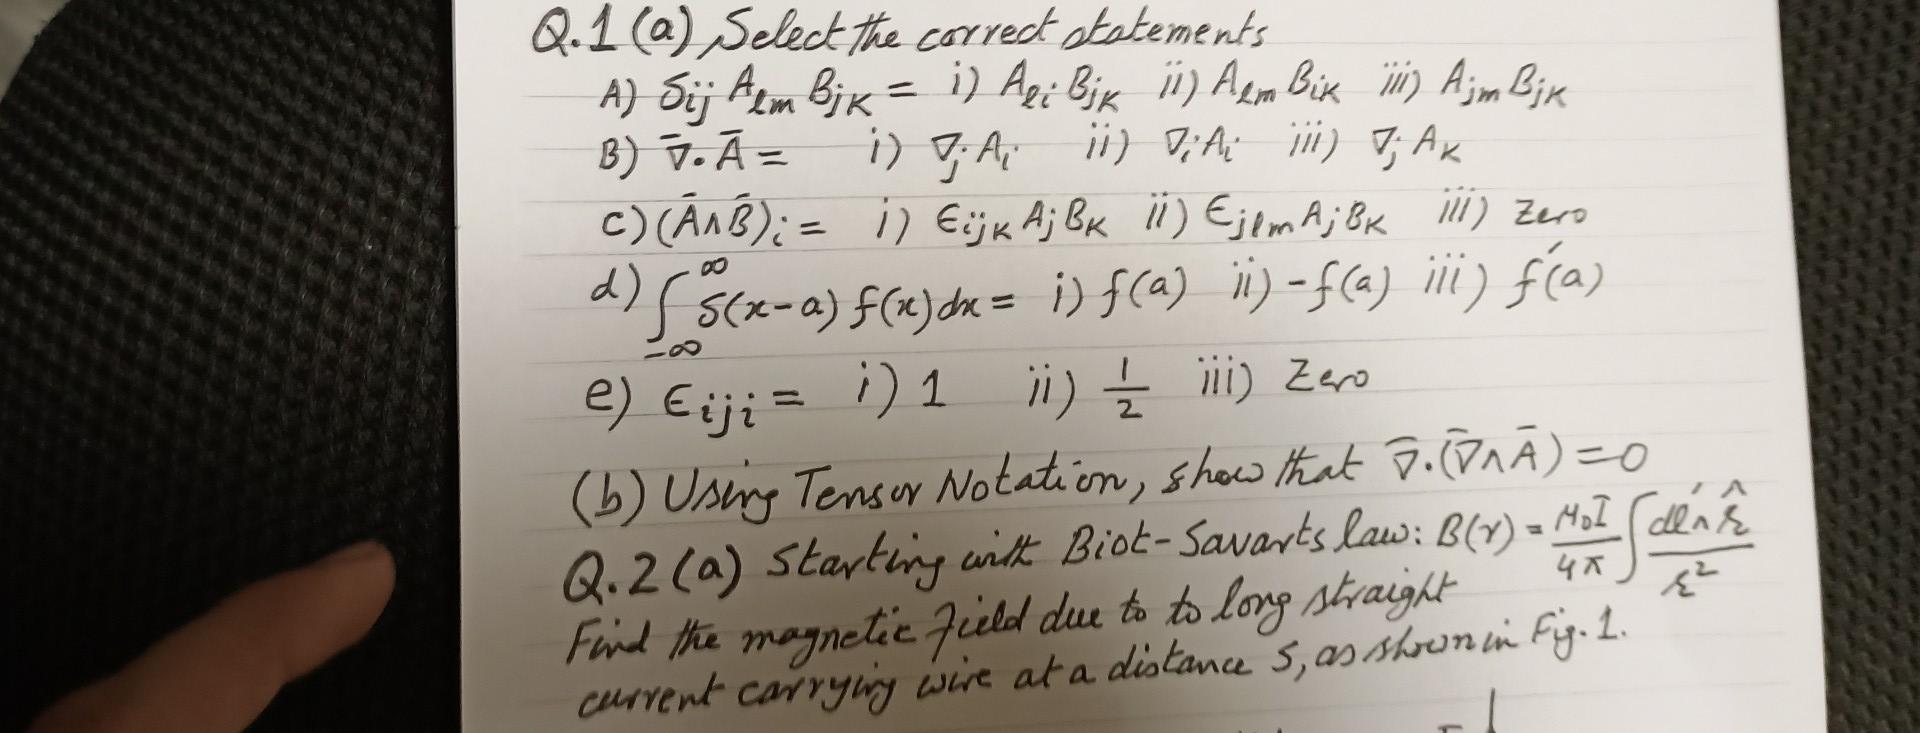 Q.1 (a) Select the correct statements
A) δij Aℓm BjK = i) Aℓi BjK ii) Aℓm BiK iii) Ajm BjK
B) ∇̄.Ā = i) ∇j Ai ii) ∇i Ai iii) ∇j AK
c) (Ā∧B̄)i = i) ϵijK Aj BK ii) ϵjℓm Aj BK iii) Zero
d) ∫_{-∞}^{∞} δ(x-a) f(x) dx = i) f(a) ii) -f(a) iii) f′(a)
e) ϵiji = i) 1 ii) 1/2 iii) Zero
(b) Using Tensor Notation, show that ∇̄.(∇̄∧Ā) = 0
Q.2 (a) Starting with Biot-Savarts law: B(r) = μ0I/4π ∫ dℓ′∧r̂/r²
Find the magnetic field due to to long straight
current carrying wire at a distance s, as shown in Fig. 1.